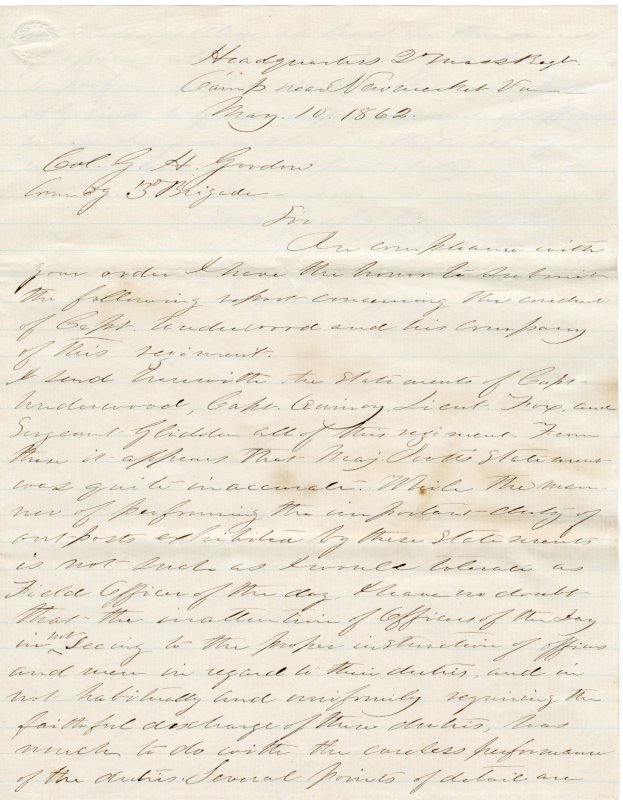 Headquarters 2d Mass Regt
Camp near Newmarket Va
May. 10. 1862.
Col. G H. Gordon
Com'dg 3d Brigade
Sir
In compliance with
your order I have the honor to submit
the following report concerning the conduct
of Capt. Underwood and his company
of this regiment.
I send herewith the statements of Capt
Underwood, Capt. Quincy, Lieut Fox, and
Sergeant Glidden all of this regiment. From
these it appears that Maj. Scott's statement
was quite inaccurate. While the man-
ner of performing the important duty of
outposts exhibited by these statements
is not such as I would tolerate as
Field Officer of the day, I have no doubt
that the inattention of Officers of the Day
in not seeing to the proper instruction of officers
and men in regard to their duties, and in
not habitually and uniformly requiring the
faithful discharge of these duties, has
much to do with the careless performance
of the duties. Several points of detail are